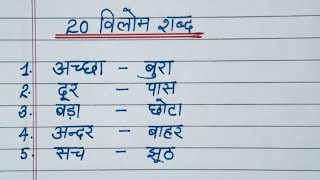 20 विलोम शब्द
1. अच्छा - बुरा
2. दूर - पास
3. बड़ा - छोटा
4. अन्दर - बाहर
5. सच - झूठ